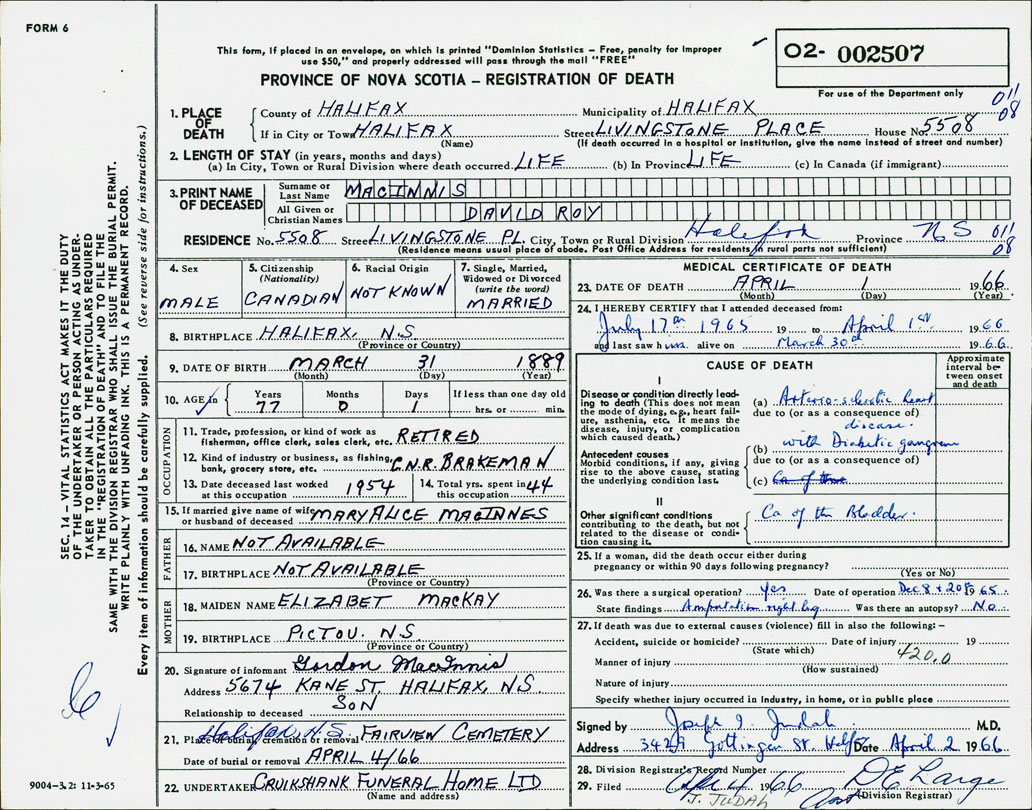 FORM 6
This form, if placed in an envelope, on which is printed "Dominion Statistics – Free, penalty for improper
use $50," and properly addressed will pass through the mail "FREE"
O2- 002507
PROVINCE OF NOVA SCOTIA – REGISTRATION OF DEATH
For use of the Department only
011
08
1. PLACE OF DEATH
County of HALIFAX Municipality of HALIFAX
If in City or Town HALIFAX Street LIVINGSTONE PLACE House No. 5508
(Name) (If death occurred in a hospital or institution, give the name instead of street and number)
2. LENGTH OF STAY (in years, months and days)
(a) In City, Town or Rural Division where death occurred LIFE (b) In Province LIFE (c) In Canada (if immigrant)
3. PRINT NAME OF DECEASED
Surname or Last Name MACINNIS
All Given or Christian Names DAVID ROY
RESIDENCE No. 5508 Street LIVINGSTONE PL. City, Town or Rural Division Halifax Province N S 011
08
(Residence means usual place of abode. Post Office Address for residents in rural parts not sufficient)
4. Sex
MALE
5. Citizenship
(Nationality)
CANADIAN
6. Racial Origin
NOT KNOWN
7. Single, Married,
Widowed or Divorced
(write the word)
MARRIED
8. BIRTHPLACE HALIFAX, N.S.
(Province or Country)
9. DATE OF BIRTH MARCH 31 1889
(Month) (Day) (Year)
10. AGE in
Years 77
Months 0
Days 1
If less than one day old
hrs. or min.
OCCUPATION
11. Trade, profession, or kind of work as
fisherman, office clerk, sales clerk, etc. RETIRED
12. Kind of industry or business, as fishing,
bank, grocery store, etc. C.N.R. BRAKEMAN
13. Date deceased last worked
at this occupation 1954
14. Total yrs. spent in
this occupation 44
15. If married give name of wife
or husband of deceased MARY ALICE MACINNES
FATHER
16. NAME NOT AVAILABLE
17. BIRTHPLACE NOT AVAILABLE
(Province or Country)
MOTHER
18. MAIDEN NAME ELIZABET MACKAY
19. BIRTHPLACE PICTOU. N.S.
(Province or Country)
20. Signature of informant Gordon MacInnis
Address 5674 KANE ST. HALIFAX, N.S.
Relationship to deceased SON
21. Place of burial, cremation or removal Halifax, N.S. FAIRVIEW CEMETERY
Date of burial or removal APRIL 4/66
22. UNDERTAKER CRUIKSHANK FUNERAL HOME LTD
(Name and address)
MEDICAL CERTIFICATE OF DEATH
23. DATE OF DEATH APRIL 1 1966
(Month) (Day) (Year)
24. I HEREBY CERTIFY that I attended deceased from:
July 17th 1965 19 to April 1st 1966
and last saw him alive on March 30th 1966
CAUSE OF DEATH
Approximate
interval be-
tween onset
and death
I
Disease or condition directly lead-
ing to death (This does not mean
the mode of dying, e.g., heart fail-
ure, asthenia, etc. It means the
disease, injury, or complication
which caused death.)
(a) Arterio-sclerotic heart
due to (or as a consequence of)
disease.
Antecedent causes
Morbid conditions, if any, giving
rise to the above cause, stating
the underlying condition last.
(b) with Diabetic gangrene
due to (or as a consequence of)
(c) Ca of the
II
Other significant conditions
contributing to the death, but not
related to the disease or condi-
tion causing it.
Ca of the Bladder.
25. If a woman, did the death occur either during
pregnancy or within 90 days following pregnancy?
(Yes or No)
26. Was there a surgical operation? yes Date of operation Dec 8 + 20th 1965.
State findings Amputation right leg Was there an autopsy? No
27. If death was due to external causes (violence) fill in also the following: –
Accident, suicide or homicide? Date of injury 19
(State which)
420.0
Manner of injury
(How sustained)
Nature of injury
Specify whether injury occurred in Industry, in home, or in public place
Signed by Joseph I. Judah M.D.
Address 3429 Gottingen St. Halfx Date April 2 1966
28. Division Registrar's Record Number
29. Filed Apr 4 1966 D E Large
(Division Registrar)
J. JUDAH
SEC. 14 – VITAL STATISTICS ACT MAKES IT THE DUTY
OF THE UNDERTAKER OR PERSON ACTING AS UNDER-
TAKER TO OBTAIN ALL THE PARTICULARS REQUIRED
IN THE "REGISTRATION OF DEATH" AND TO FILE THE
SAME WITH THE DIVISION REGISTRAR WHO SHALL ISSUE THE BURIAL PERMIT.
WRITE PLAINLY WITH UNFADING INK. THIS IS A PERMANENT RECORD.
Every item of information should be carefully supplied. (See reverse side for instructions.)
9004–3.2: 11-3-65